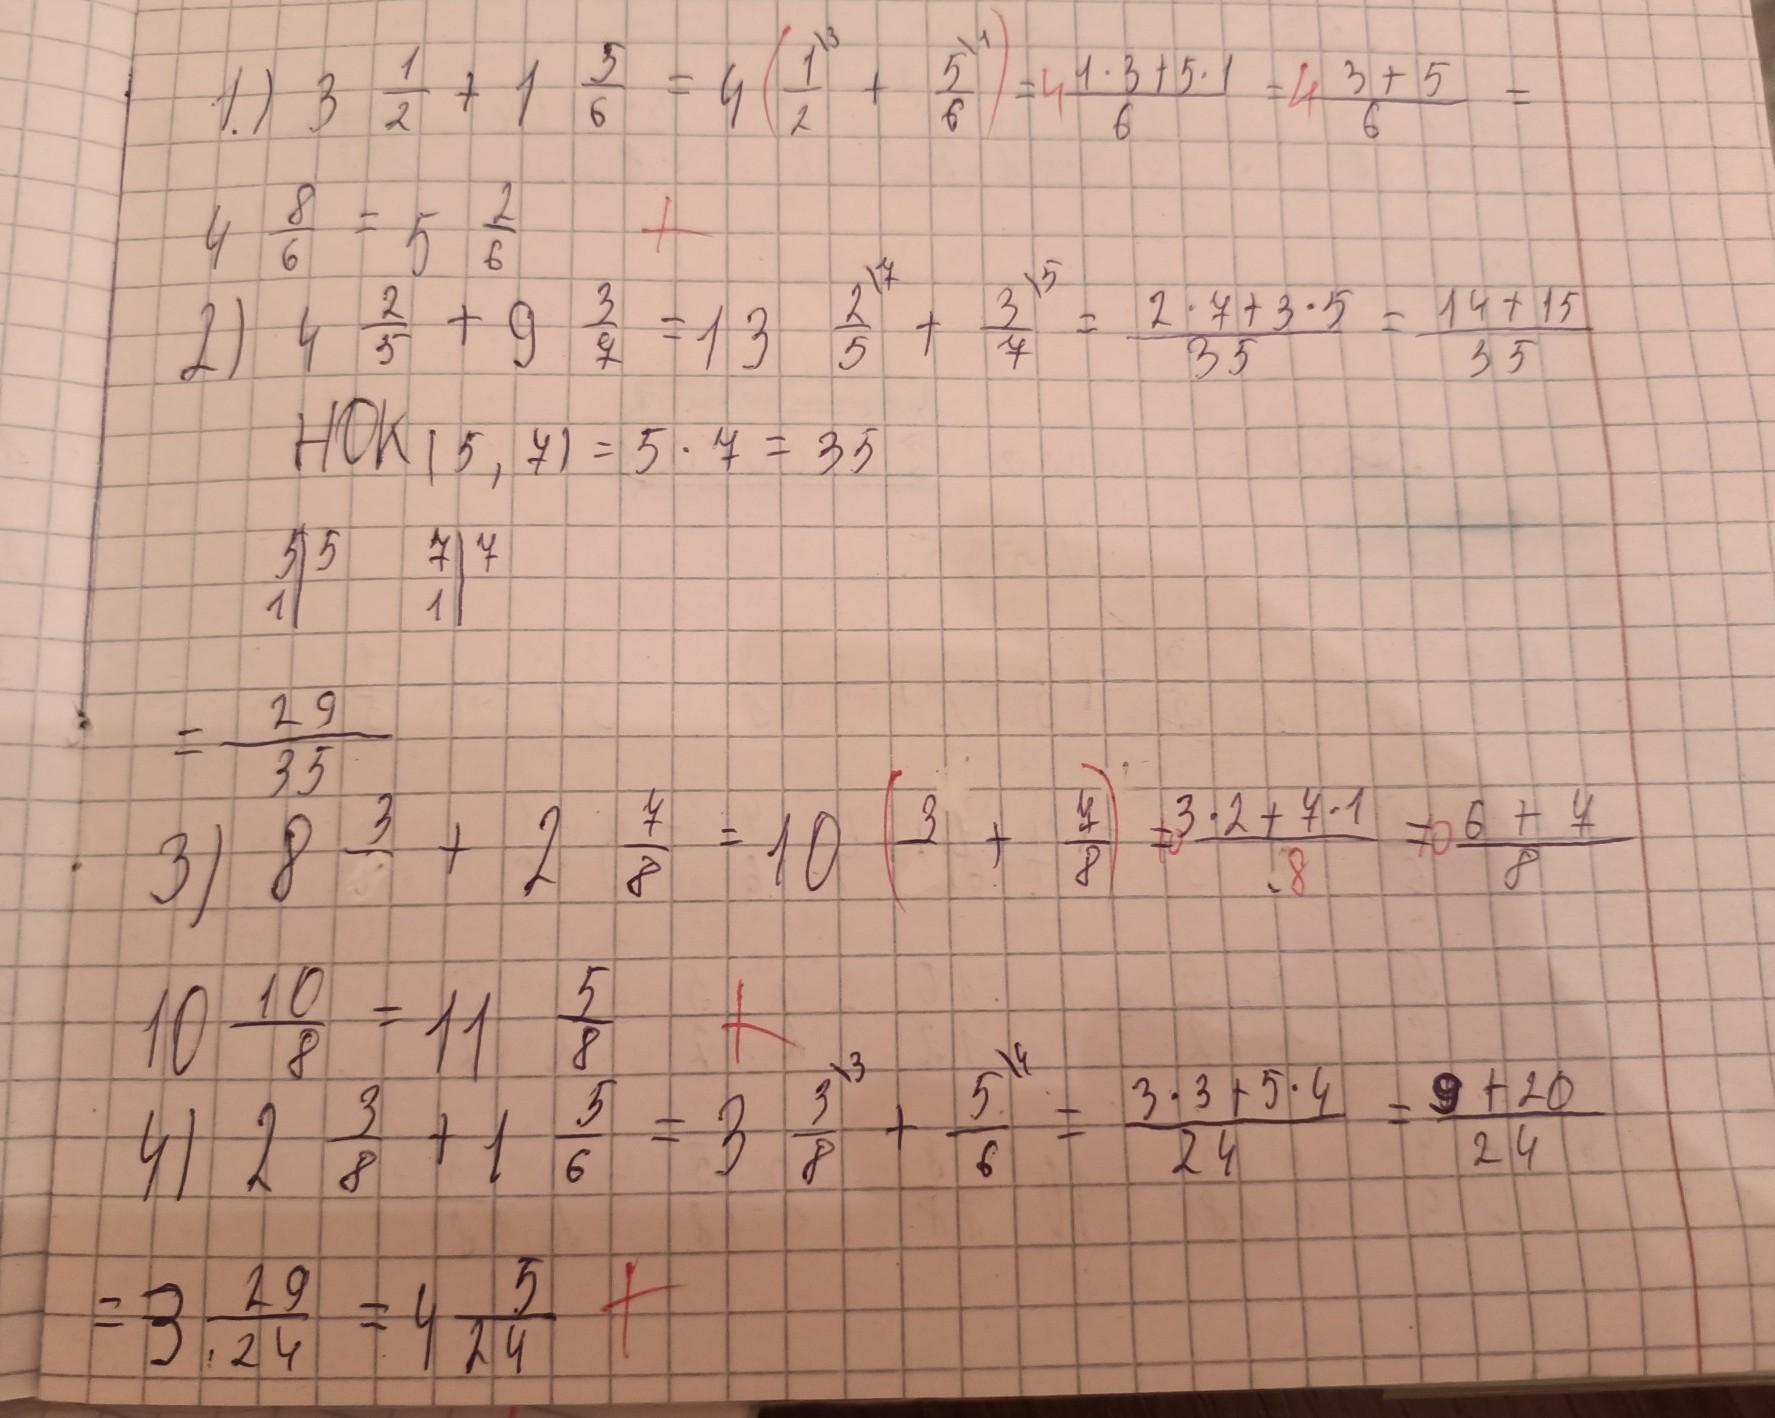 1.) 3 1/2 + 1 5/6 = 4 (1/2 \3 + 5/6 \1) = 4 1·3+5·1/6 = 4 3+5/6 =
4 8/6 = 5 2/6 +
2) 4 2/5 + 9 3/7 = 13 2/5 \7 + 3/7 \5 = 2·7+3·5/35 = 14+15/35
НОК(5, 7) = 5·7 = 35
5|5 7|7
1| 1|
= 29/35
3) 8 3/ + 2 7/8 = 10 (3/ + 7/8) = 10 3·2+7·1/8 = 10 6+7/8
10 10/8 = 11 5/8 +
4) 2 3/8 + 1 5/6 = 3 3/8 \3 + 5/6 \4 = 3·3+5·4/24 = 9+20/24
= 3 29/24 = 4 5/24 +